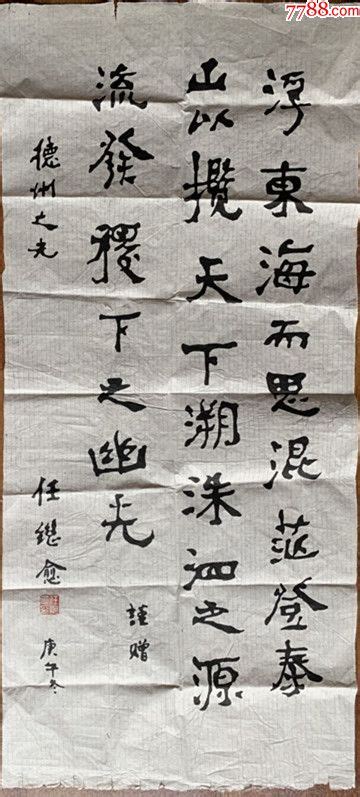 7788.com
浮東海而思混茫登泰
山以攬天下溯洙泗之源
流發稷下之幽光
德州
謹贈
任繼愈
庚午冬